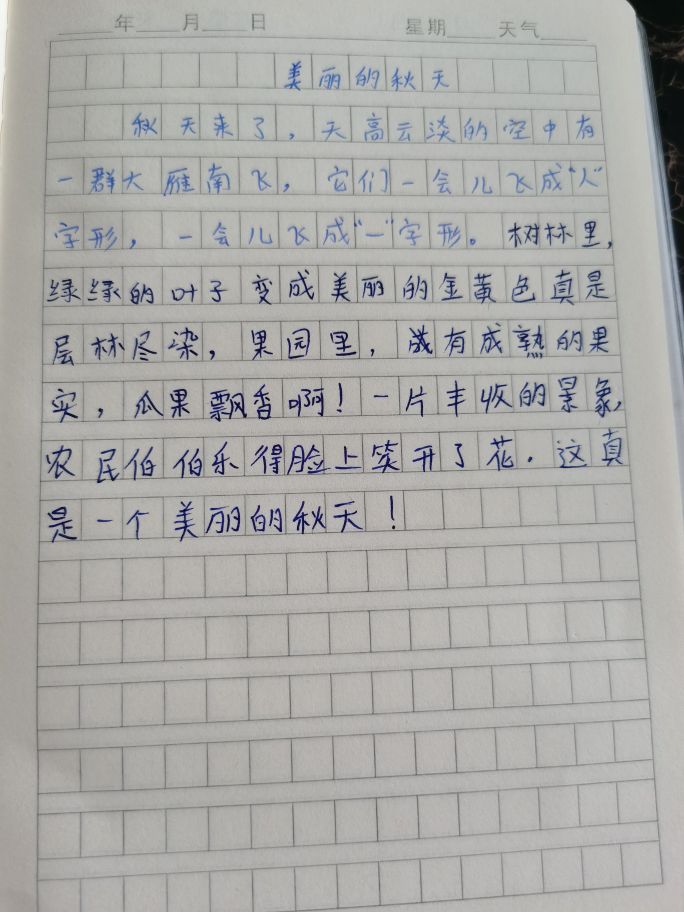 年 月 日 星期 天气
美丽的秋天
秋天来了，天高云淡的空中有
一群大雁南飞，它们一会儿飞成“人”
字形，一会儿飞成“一”字形。树林里，
绿绿的叶子变成美丽的金黄色真是
层林尽染，果园里，有成熟的果
实，瓜果飘香啊！一片丰收的景象，
农民伯伯乐得脸上笑开了花．这真
是一个美丽的秋天！